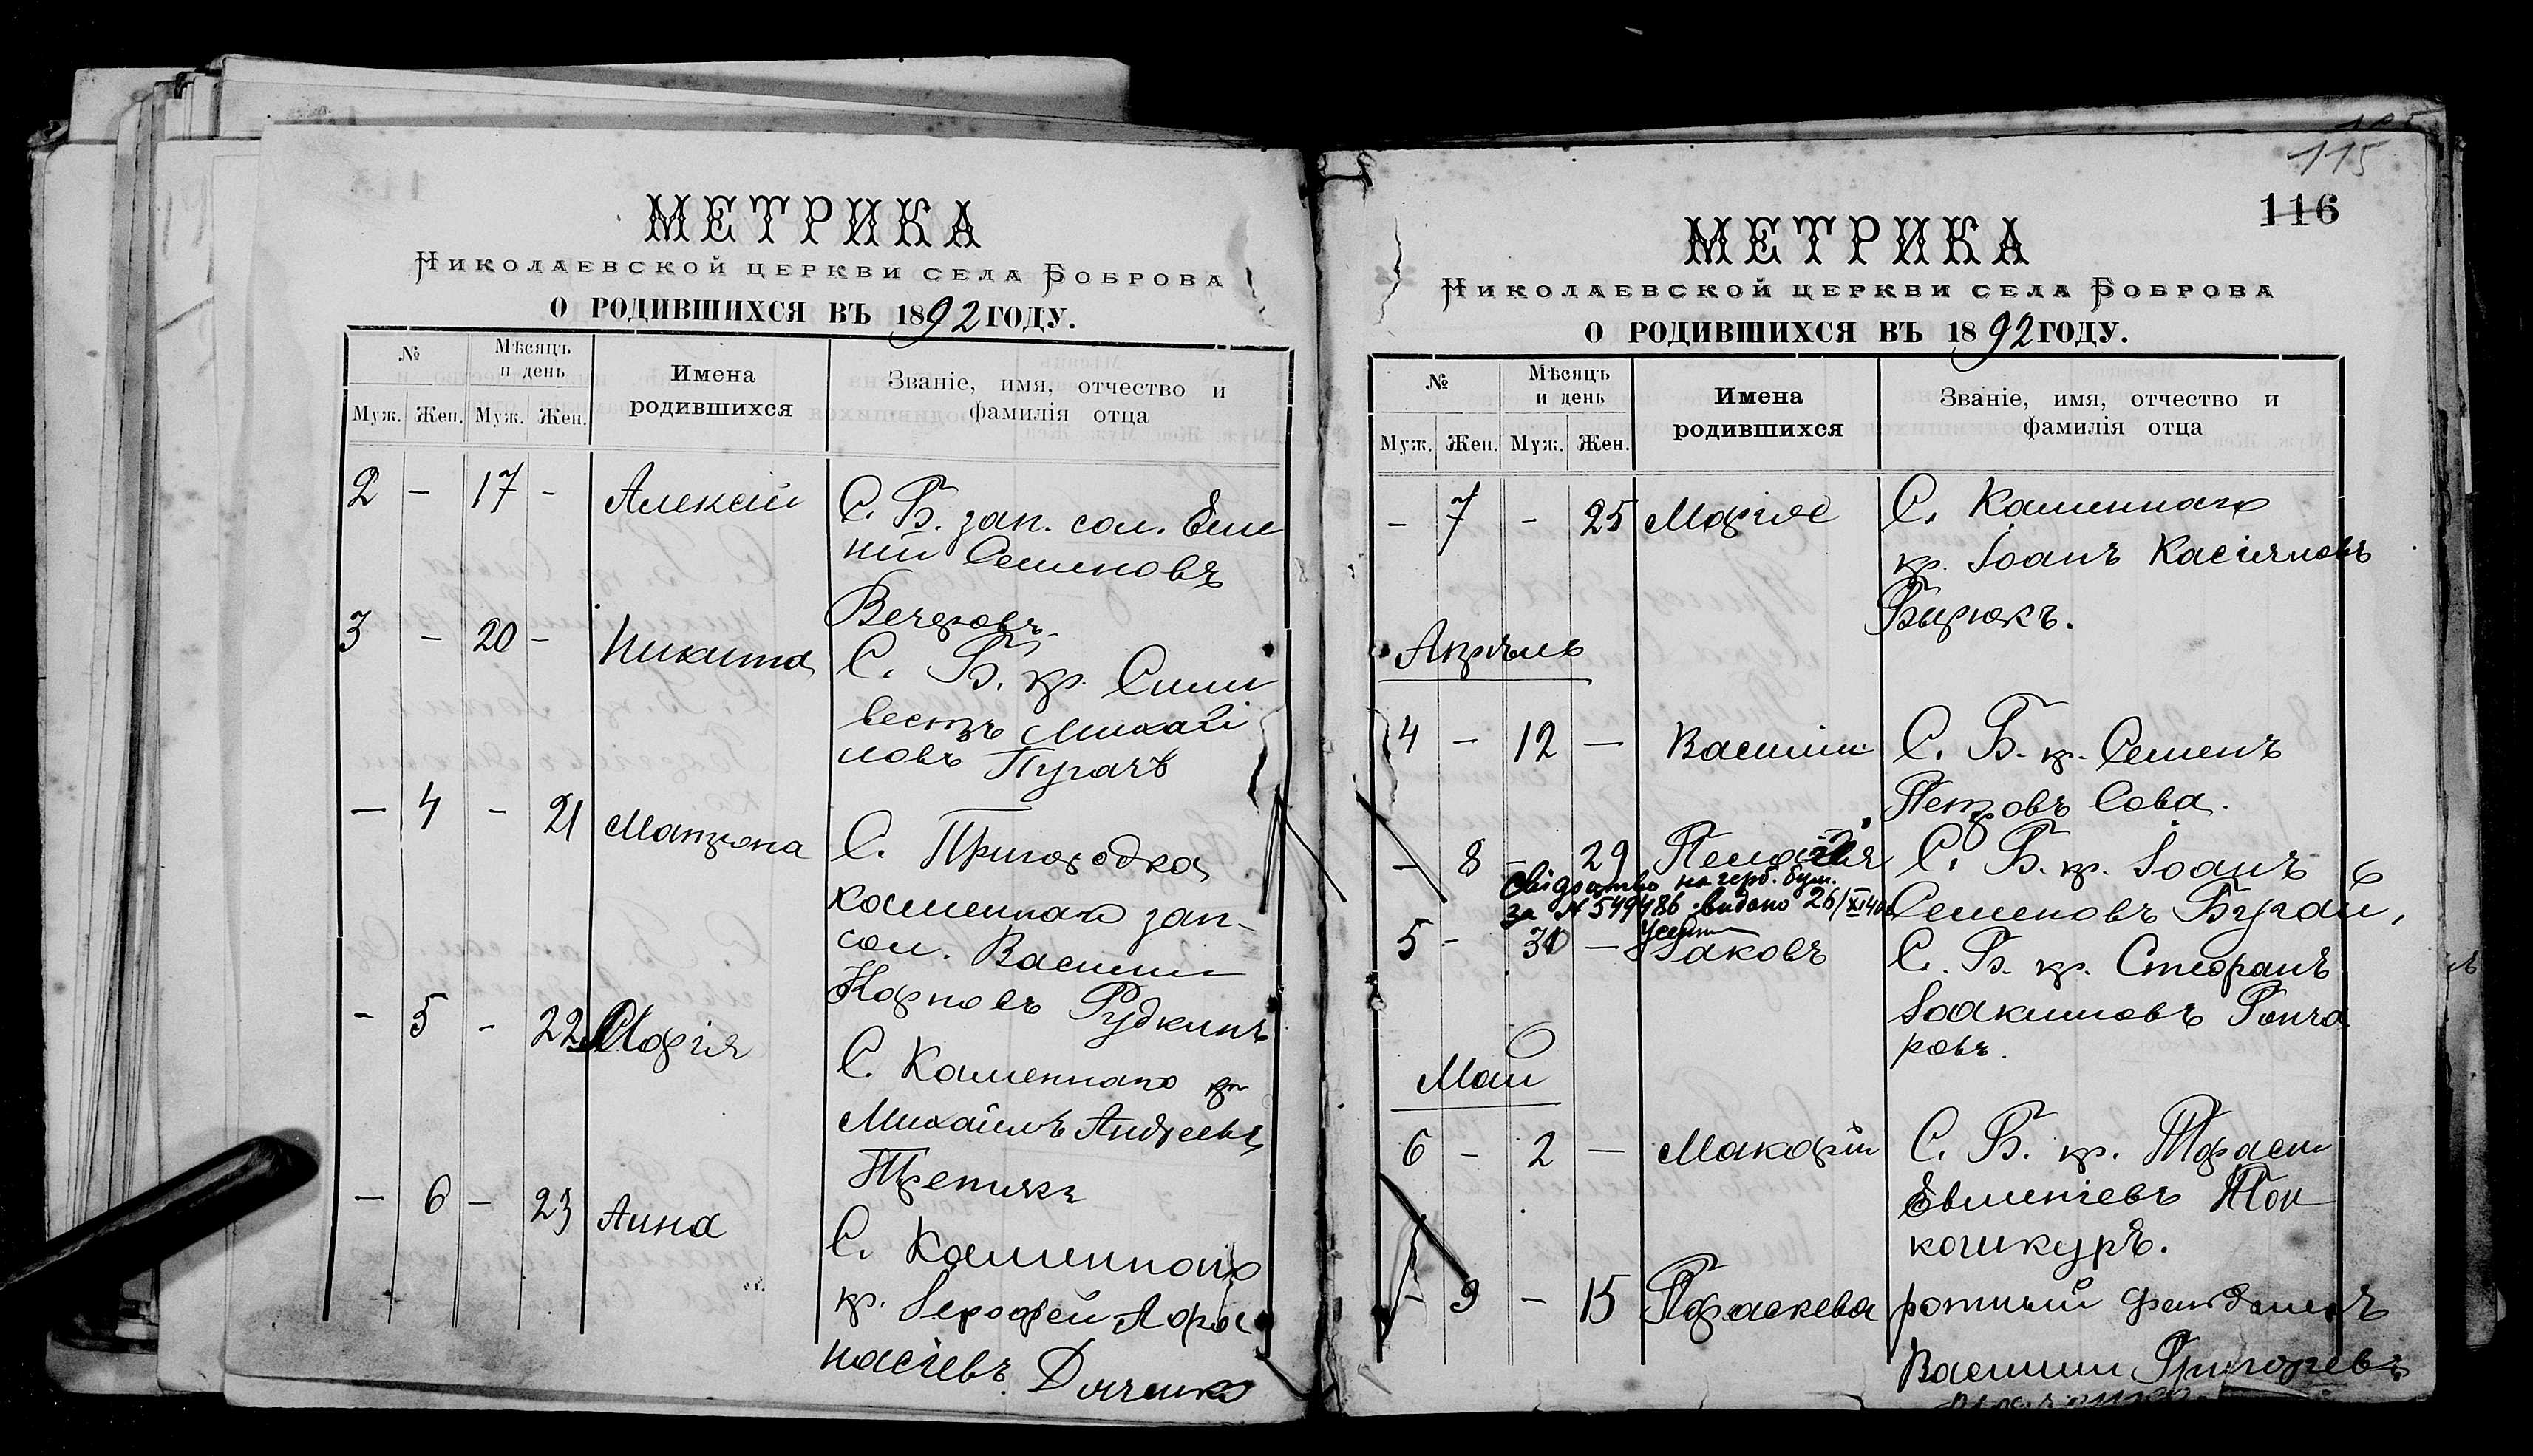 МЕТРИКА
Николаевской церкви села Боброва
О РОДИВШИХСЯ ВЪ 1892 ГОДУ.
№ Мѣсяцъ и день Имена родившихся Званіе, имя, отчество и фамилія отца
Муж. Жен. Муж. Жен.
2 - 17 - Алексій С. Б. зап. сол.
Семеновъ
3 - 20 - Никита С. Б. кр. Силь
вестръ Михай
ловъ Пугачъ
- 4 - 21 Матрона С. Пригородка
каменнаго зап.
сол. Василій
Карповъ Рудкинъ
- 5 - 22 Марія С. Каменнаго кр.
Михаилъ Андреевъ
Третякъ
- 6 - 23 Анна С. Каменнаго
кр. Іерофей Афа
насіевъ Дяченко
115
116
МЕТРИКА
Николаевской церкви села Боброва
О РОДИВШИХСЯ ВЪ 1892 ГОДУ.
№ Мѣсяцъ и день Имена родившихся Званіе, имя, отчество и фамилія отца
Муж. Жен. Муж. Жен.
- 7 - 25 Марія С. Каменнаго
кр. Іоанъ Касіяновъ
Бирюкъ.
Апрѣль
4 - 12 - Василій С. Б. кр. Семенъ
Петровъ Сова.
- 8 - 29 Пелагія С. Б. кр. Іоанъ
Семеновъ Бугай,
на герб. бум.
за № 549486 видано 26/XI
5 - 30 - Іаковъ С. Б. кр. Стефанъ
Іоакимовъ Гонча
ровъ.
Май
6 - 2 - Макарій С. Б. кр.
Евменіевъ
кошкуръ.
- 9 - 15 Параскева ротный фельдшеръ
Василій Григорьевъ